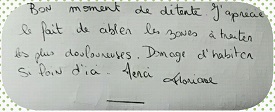 Bon moment de détente J'apprécie
le fait de cibler les zones à traiter
les plus douloureuses. Domage d'habiter
si loin d'ici. Merci Floriane